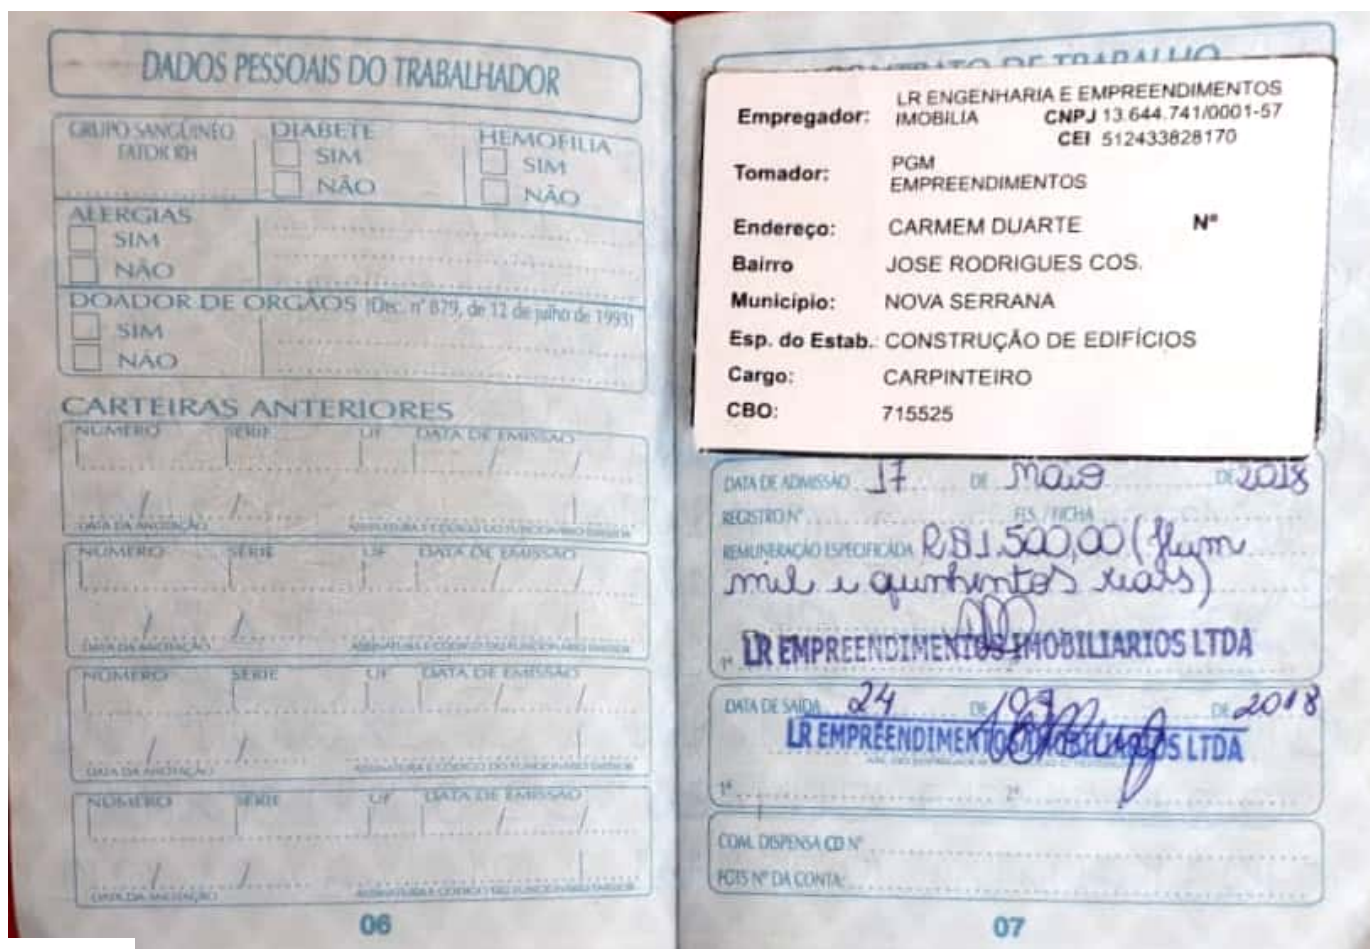 DADOS PESSOAIS DO TRABALHADOR
GRUPO SANGÜINEO
FATOR RH
DIABETE
SIM
NÃO
HEMOFILIA
SIM
NÃO
ALERGIAS
SIM
NÃO
DOADOR DE ORGÃOS (Dec. nº 879, de 12 de julho de 1993)
SIM
NÃO
CARTEIRAS ANTERIORES
NÚMERO SÉRIE UF DATA DE EMISSÃO
DATA DA ANOTAÇÃO ASSINATURA E CÓDIGO DO FUNCIONÁRIO EMISSOR
NÚMERO SÉRIE UF DATA DE EMISSÃO
DATA DA ANOTAÇÃO ASSINATURA E CÓDIGO DO FUNCIONÁRIO EMISSOR
NÚMERO SÉRIE UF DATA DE EMISSÃO
DATA DA ANOTAÇÃO ASSINATURA E CÓDIGO DO FUNCIONÁRIO EMISSOR
NÚMERO SÉRIE UF DATA DE EMISSÃO
DATA DA ANOTAÇÃO ASSINATURA E CÓDIGO DO FUNCIONÁRIO EMISSOR
06
CONTRATO DE TRABALHO
Empregador: LR ENGENHARIA E EMPREENDIMENTOS
IMOBILIA CNPJ 13.644.741/0001-57
CEI 512433828170
Tomador: PGM
EMPREENDIMENTOS
Endereço: CARMEM DUARTE Nº
Bairro JOSE RODRIGUES COS.
Município: NOVA SERRANA
Esp. do Estab.: CONSTRUÇÃO DE EDIFÍCIOS
Cargo: CARPINTEIRO
CBO: 715525
DATA DE ADMISSÃO 17 DE Maio DE 2018
REGISTRO Nº FLS. / FICHA
REMUNERAÇÃO ESPECIFICADA R$1.500,00 (Hum
mil e quinhentos reais)
LR EMPREENDIMENTOS IMOBILIARIOS LTDA
1ª
DATA DE SAÍDA 24 DE DE 2018
LR EMPREENDIMENTOS IMOBILIARIOS LTDA
1ª 2ª
COM. DISPENSA CD Nº
FGTS Nº DA CONTA:
07